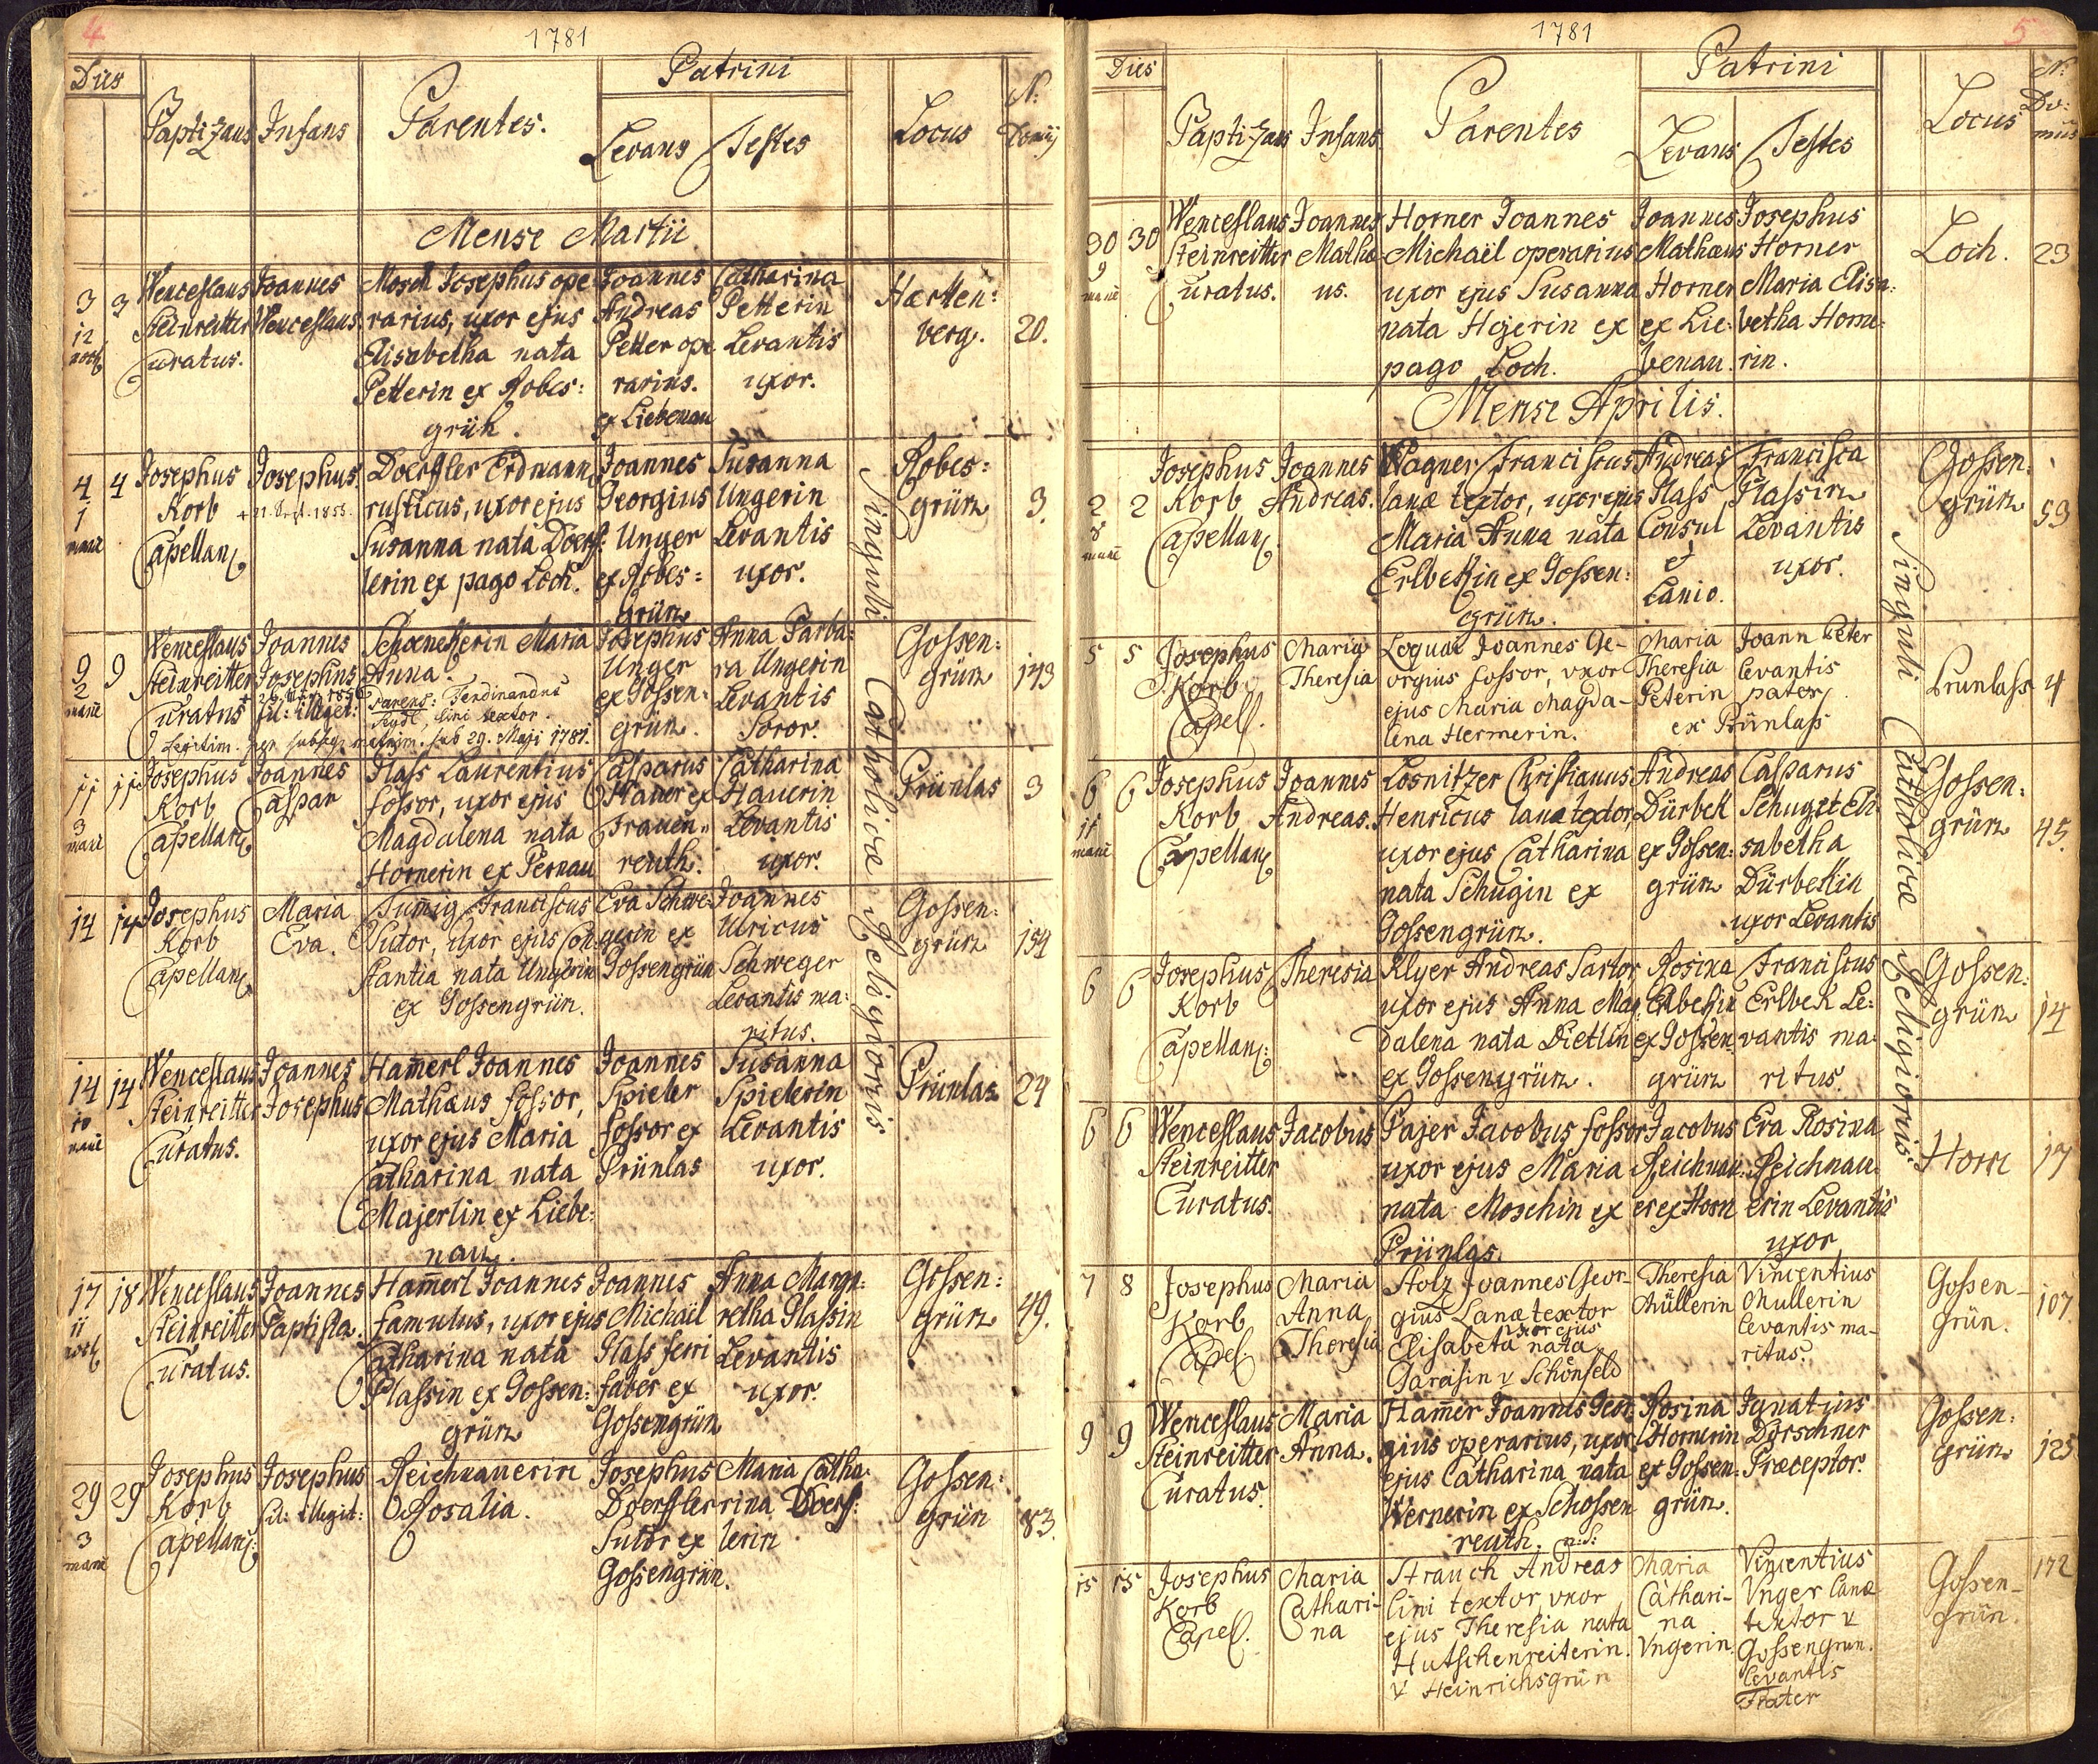 4
1781
Dies
Patrini
Baptizans Infans Parentes. Levans Testes Locus N: Domûs
Mense Martii
3 3
12
noct
Wenceslaus
Steinreitter
Curatus.
Joannes
Wenceslaus
Mosch Josephus ope
rarius, uxor ejus
Elisabetha nata
Petterin ex Robes:
grün.
Joannes
Andreas
Petter ope
rarius.
ex Liebenau
Catharina
Petterin
Levantis
uxor.
Hartten:
berg.
20.
4 4
1
mane
Josephus
Korb
Capellanus
Josephus
+ 11. Sept. 1855.
Doerfler Erdmann
rusticus, uxor ejus
Susanna nata Doerf:
lerin ex pago Loch.
Joannes
Georgius
Unger
ex Robes=
grün
Susanna
Ungerin
Levantis
uxor.
Robes=
grün
3.
9 9
2
mane
Wenceslaus
Steinreitter
Curatus
Joannes
Josephus
fil: illegit:
Schoenekerin Maria
Anna.
parens: Ferdinandus
lini textor.
Legitim. per subseq. matrim. sub 29. Maji 1787.
Josephus
Unger
ex Gossen:
grün.
Anna Barba:
ra Ungerin
Levantis
Soror.
Gossen:
grün
143
11 11
3
mane
Josephus
Korb
Capellanus
Joannes
Caspar
Glass Laurentius
fossor, uxor ejus
Magdalena nata
Hornerin ex Pernau
Casparus
Hauer ex
Frauen=
reuth.
Catharina
Hauerin
Levantis
uxor.
Prünlas
3
14 14
Josephus
Korb
Capellanus
Maria
Eva.
Franciscus
Sutor, uxor ejus Con
stantia nata Ungerin
ex Gossengrün.
Eva Schwe:
gerin ex
Gossengrün
Joannes
Ulricus
Schweger
Levantis ma:
ritus.
Gossen:
grün
154
14 14
10
mane
Wenceslaus
Steinreitter
Curatus.
Joannes
Josephus
Ham̄erl Joannes
Mathæus fossor,
uxor ejus Maria
Catharina nata
Majerlin ex Liebe:
nau.
Joannes
Spieler
fossor ex
Prünlas
Susanna
Spielerin
Levantis
uxor.
Prünlas
24
17 18
11
noct
Wenceslaus
Steinreitter
Curatus.
Joannes
Baptista.
Ham̄erl Joannes
famulus, uxor ejus
Catharina nata
Glassin ex Gossen:
grün
Joannes
Michaël
Glass ferri
faber ex
Gossengrün
Anna Marga:
retha Glassin
Levantis
uxor.
Gossen:
grün
49.
29 29
3
mane
Josephus
Korb
Capellanus:
Josephus
fil: illegit:
Reichnauerin
Rosalia.
Josephus
Doerffler
Sutor ex
Gossengrün.
Maria Catha:
rina Doerf:
lerin
Gossen:
grün
83.
Singuli Catholicæ Religionis
5
1781
Dies
Patrini
Baptizans Infans Parentes Levans Testes Locus N: Do:
mus
30 30
9
mane
Wenceslaus
Steinreitter
Curatus.
Joannes
Mathæ
us.
Horner Joannes
Michaël operarius
uxor ejus Susanna
nata Hejerin ex
pago Loch.
Joannes
Mathæus
Horner
ex Lie:
benau.
Josephus
Horner
Maria Elisa:
betha Horne:
rin.
Loch.
23
Mense Aprilis.
2 2
8
mane
Josephus
Korb
Capellanus
Joannes
Andreas.
Wagner Franciscus
lanæ textor, uxor ejus
Maria Anna nata
Erlbekin ex Gossen:
grün.
Andreas
Glass
Consul
et
Lanio.
Francisca
Glassin
Levantis
uxor.
Gossen:
grün
53
5 5
Josephus
Korb
Capell.
Maria
Theresia
Loquai Joannes Ge-
orgius fossor, uxor
ejus Maria Magda-
lena Hermerin.
Maria
Theresia
Peterin
ex Prünlass
Joann Peter
levantis
pater
Prunlass
4
6 6
11
mane
Josephus
Korb
Capellanus
Joannes
Andreas.
Losnitzer Christianus
Henricus lanæ textor,
uxor ejus Catharina
nata Schugin ex
Gossengrün.
Andreas
Dürbek
ex Gossen:
grün
Casparus
Schug et Eli
sabetha
Dürbekin
uxor Levantis
Gossen:
grün
45.
6 6
Josephus
Korb
Capellanus:
Theresia
Klyer Andreas Sartor,
uxor ejus Anna Mag
dalena nata Dietlin
ex Gossengrün.
Rosina
Erlbekin
ex Gossen:
grün
Franciscus
Erlbek Le:
vantis ma:
ritus.
Gossen:
grün
14
6 6
Wenceslaus
Steinreitter
Curatus.
Jacobus
Pajer Jacobus fossor
uxor ejus Maria
nata Moschin ex
Prünlas.
Jacobus
Reichnau:
er ex Horn
Eva Rosina
Reichnau:
erin Levantis
uxor
Horn
17
7 8
Josephus
Korb
Capel.
Maria
Anna
Theresia
Stolz Joannes Geor-
gius Lanæ textor
uxor ejus
Elisabeta nata
Gareisin v Schönfeld
Theresia
Müllerin
Vincentius
Mullerin
levantis ma-
ritus.
Gossen-
Grün.
107
9 9
Wenceslaus
Steinreitter
Curatus.
Maria
Anna.
Ham̄er Joannes Geor:
gius operarius, uxor
ejus Catharina nata
Wernerin ex Schossen
reuth.
Rosina
Hornerin
ex Gossen:
grün.
Ignatius
Dörschner
Præceptor.
Gossen:
grün
125
15 15
Josephus
Korb
Capel.
Maria
Cathari-
na
Strauch Andreas
lini textor, uxor
ejus Theresia nata
Hutschenreiterin.
v Heinrichsgrün
Maria
Cathari-
na
Vngerin.
Vincentius
Vnger lanæ
textor v
Gossengrun.
levantis
Frater
Gossen-
grün.
172
Singuli Catholicæ Religionis.